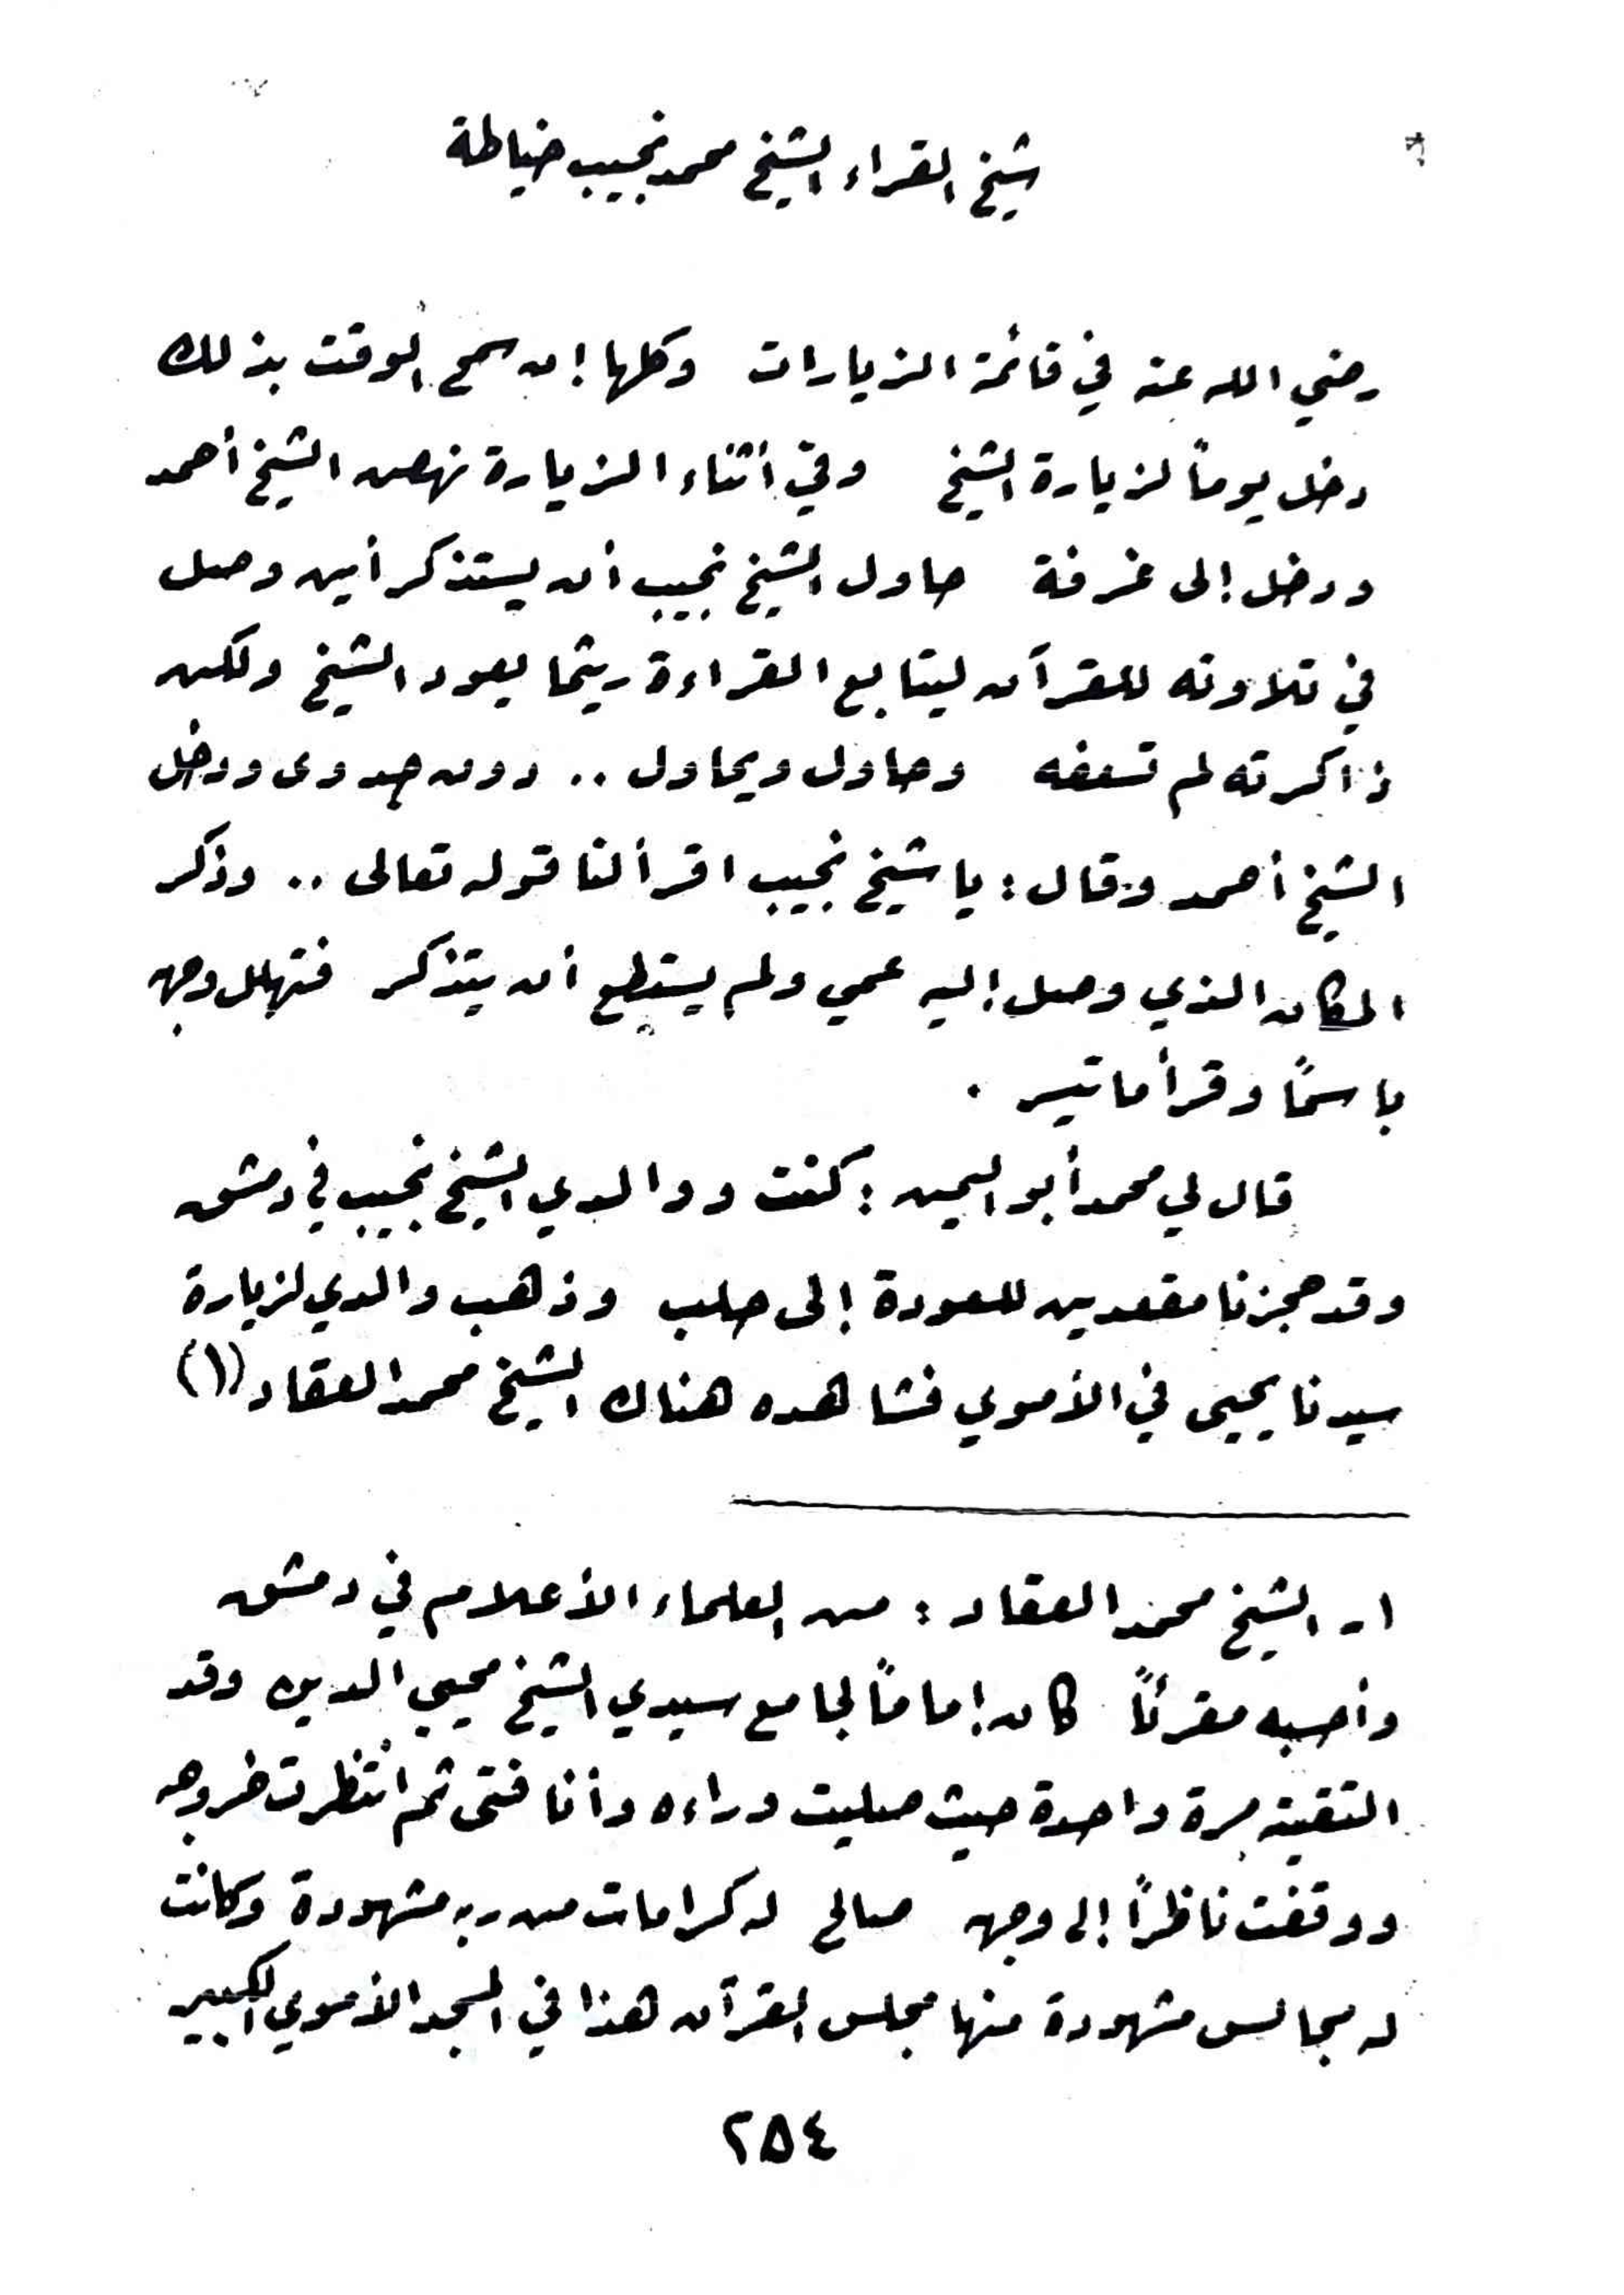 شيخ القراء الشيخ محمد نجيب خياطة
رضي الله عنه في قائمة الزيارات وكلها إن سمح الوقت بذلك
دخل يوماً لزيارة الشيخ وفي أثناء الزيارة نهض الشيخ أحمد
ودخل إلى غرفة حاول الشيخ نجيب أن يستذكر أين وصل
في تلاوته للقرآن ليتابع القراءة ريثما يعود الشيخ ولكن
ذاكرته لم تسعفه وحاول ويحاول .. دون جدوى ودخل
الشيخ أحمد وقال : يا شيخ نجيب اقرأ لنا قوله تعالى .. وذكر
المكان الذي وصل إليه عمي ولم يستطع أن يتذكر فتهلل وجهه
باسماً وقرأ ما تيسر .
قال لي محمد أبو اليمن : كنت ووالدي الشيخ نجيب في دمشق
وقد حجزنا مقعدين للعودة إلى حلب وذهب والدي لزيارة
سيدنا يحيى في الأموي فشاهده هناك الشيخ محمد العقاد (١)
١- الشيخ محمد العقاد : من العلماء الأعلام في دمشق
وأحسبه مقرئاً كان إماماً لجامع سيدي الشيخ محيي الدين وقد
التقيته مرة واحدة حيث صليت وراءه وأنا فتى ثم انتظرت خروجه
ووقفت ناظراً إلى وجهه صالح له كرامات من ربه مشهودة وكانت
له مجالس مشهودة منها مجلس القرآن هذا في المسجد الأموي الكبير
٢٥٤